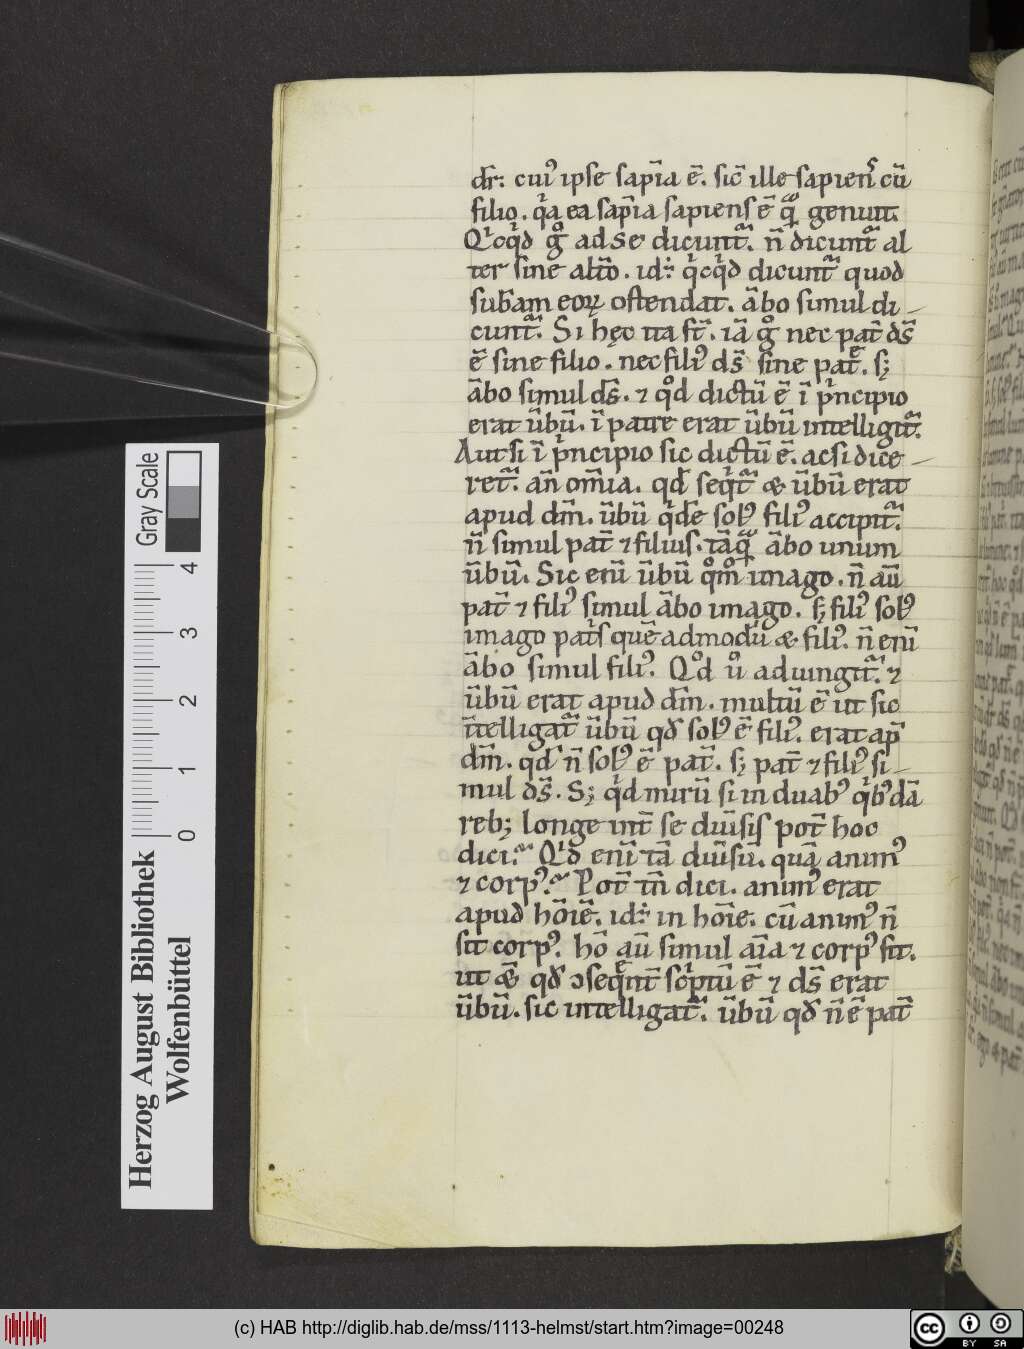 dr̄: cui᷒ ipse sapīa ē. sic̄ ille sapiens cū
filio. qͥa ea sapīa sapiens ē qͣ genuit.
Qͥcqͥd gͦ ad se dicuntᷓ. n̄ dicuntᷓ al
ter sine altō. id: qͥcqͥd dicuntᷓ quod
sub̄am eoꝝ ostendat. ābo simul di-
cuntᷓ. Si hęc ita st̄. iā gͦ nec pat̄ ds̄
ē sine filio. nec fili᷒ ds̄ sine pat̄e. sꝫ
ābo simul ds̄. ⁊ qͦd dictū ē ī pͥncipio
erat ūbū. ī patre erat ūbū intelligitᷓ.
Aut si ī pͥncipio sic dictū ē. ac si dice-
retᷓ. an̄ om̄ia. qd̄ seqͥtᷓ & ūbū erat
apud dm̄. ūbū qͥde sol᷒ fili᷒ accipitᷓ.
n̄ simul pat̄ ⁊ filius. tāqͣ ābo unum
ūbū. Sic enī ūbū qͦmͦ imago. n̄ aū
pat̄ ⁊ fili᷒ simul ābo imago. sꝫ fili᷒ sol᷒
imago pat̄s quē admodū & fili᷒. n̄ enī
ābo simul fili᷒. Qͦd uͦ adiungitᷓ. ⁊
ūbū erat apud dm̄. multū ē ut sic
īntelligatᷓ ūbū qd̄ sol᷒ ē fili᷒. erat ap̄
dm̄. qd̄ n̄ sol᷒ ē pat̄. sꝫ pat̄ ⁊ fili᷒ si-
mul ds̄. Sꝫ qͥd mirū si in duab᷒ qͥb᷒dā
rebꝫ longe int̄ se diūsis pot̄ hoc
dici? Qͥd enī tā diūsū. quā anim᷒
⁊ corp᷒? Pot̄ tn̄ dici. anim᷒ erat
apud hōiē. id: in hōie. cū anim᷒ n̄
sit corp᷒. hō aū simul aīa ⁊ corp᷒ sit.
ut & qd̄ ↄseqͥnt̄ scͥptū ē ⁊ ds̄ erat
ūbū. sic intelligatᷓ. ūbū qd̄ n̄ ē pat̄
Herzog August Bibliothek
Wolfenbüttel
Gray Scale
0 1 2 3 4
(c) HAB http://diglib.hab.de/mss/1113-helmst/start.htm?image=00248
cc BY SA